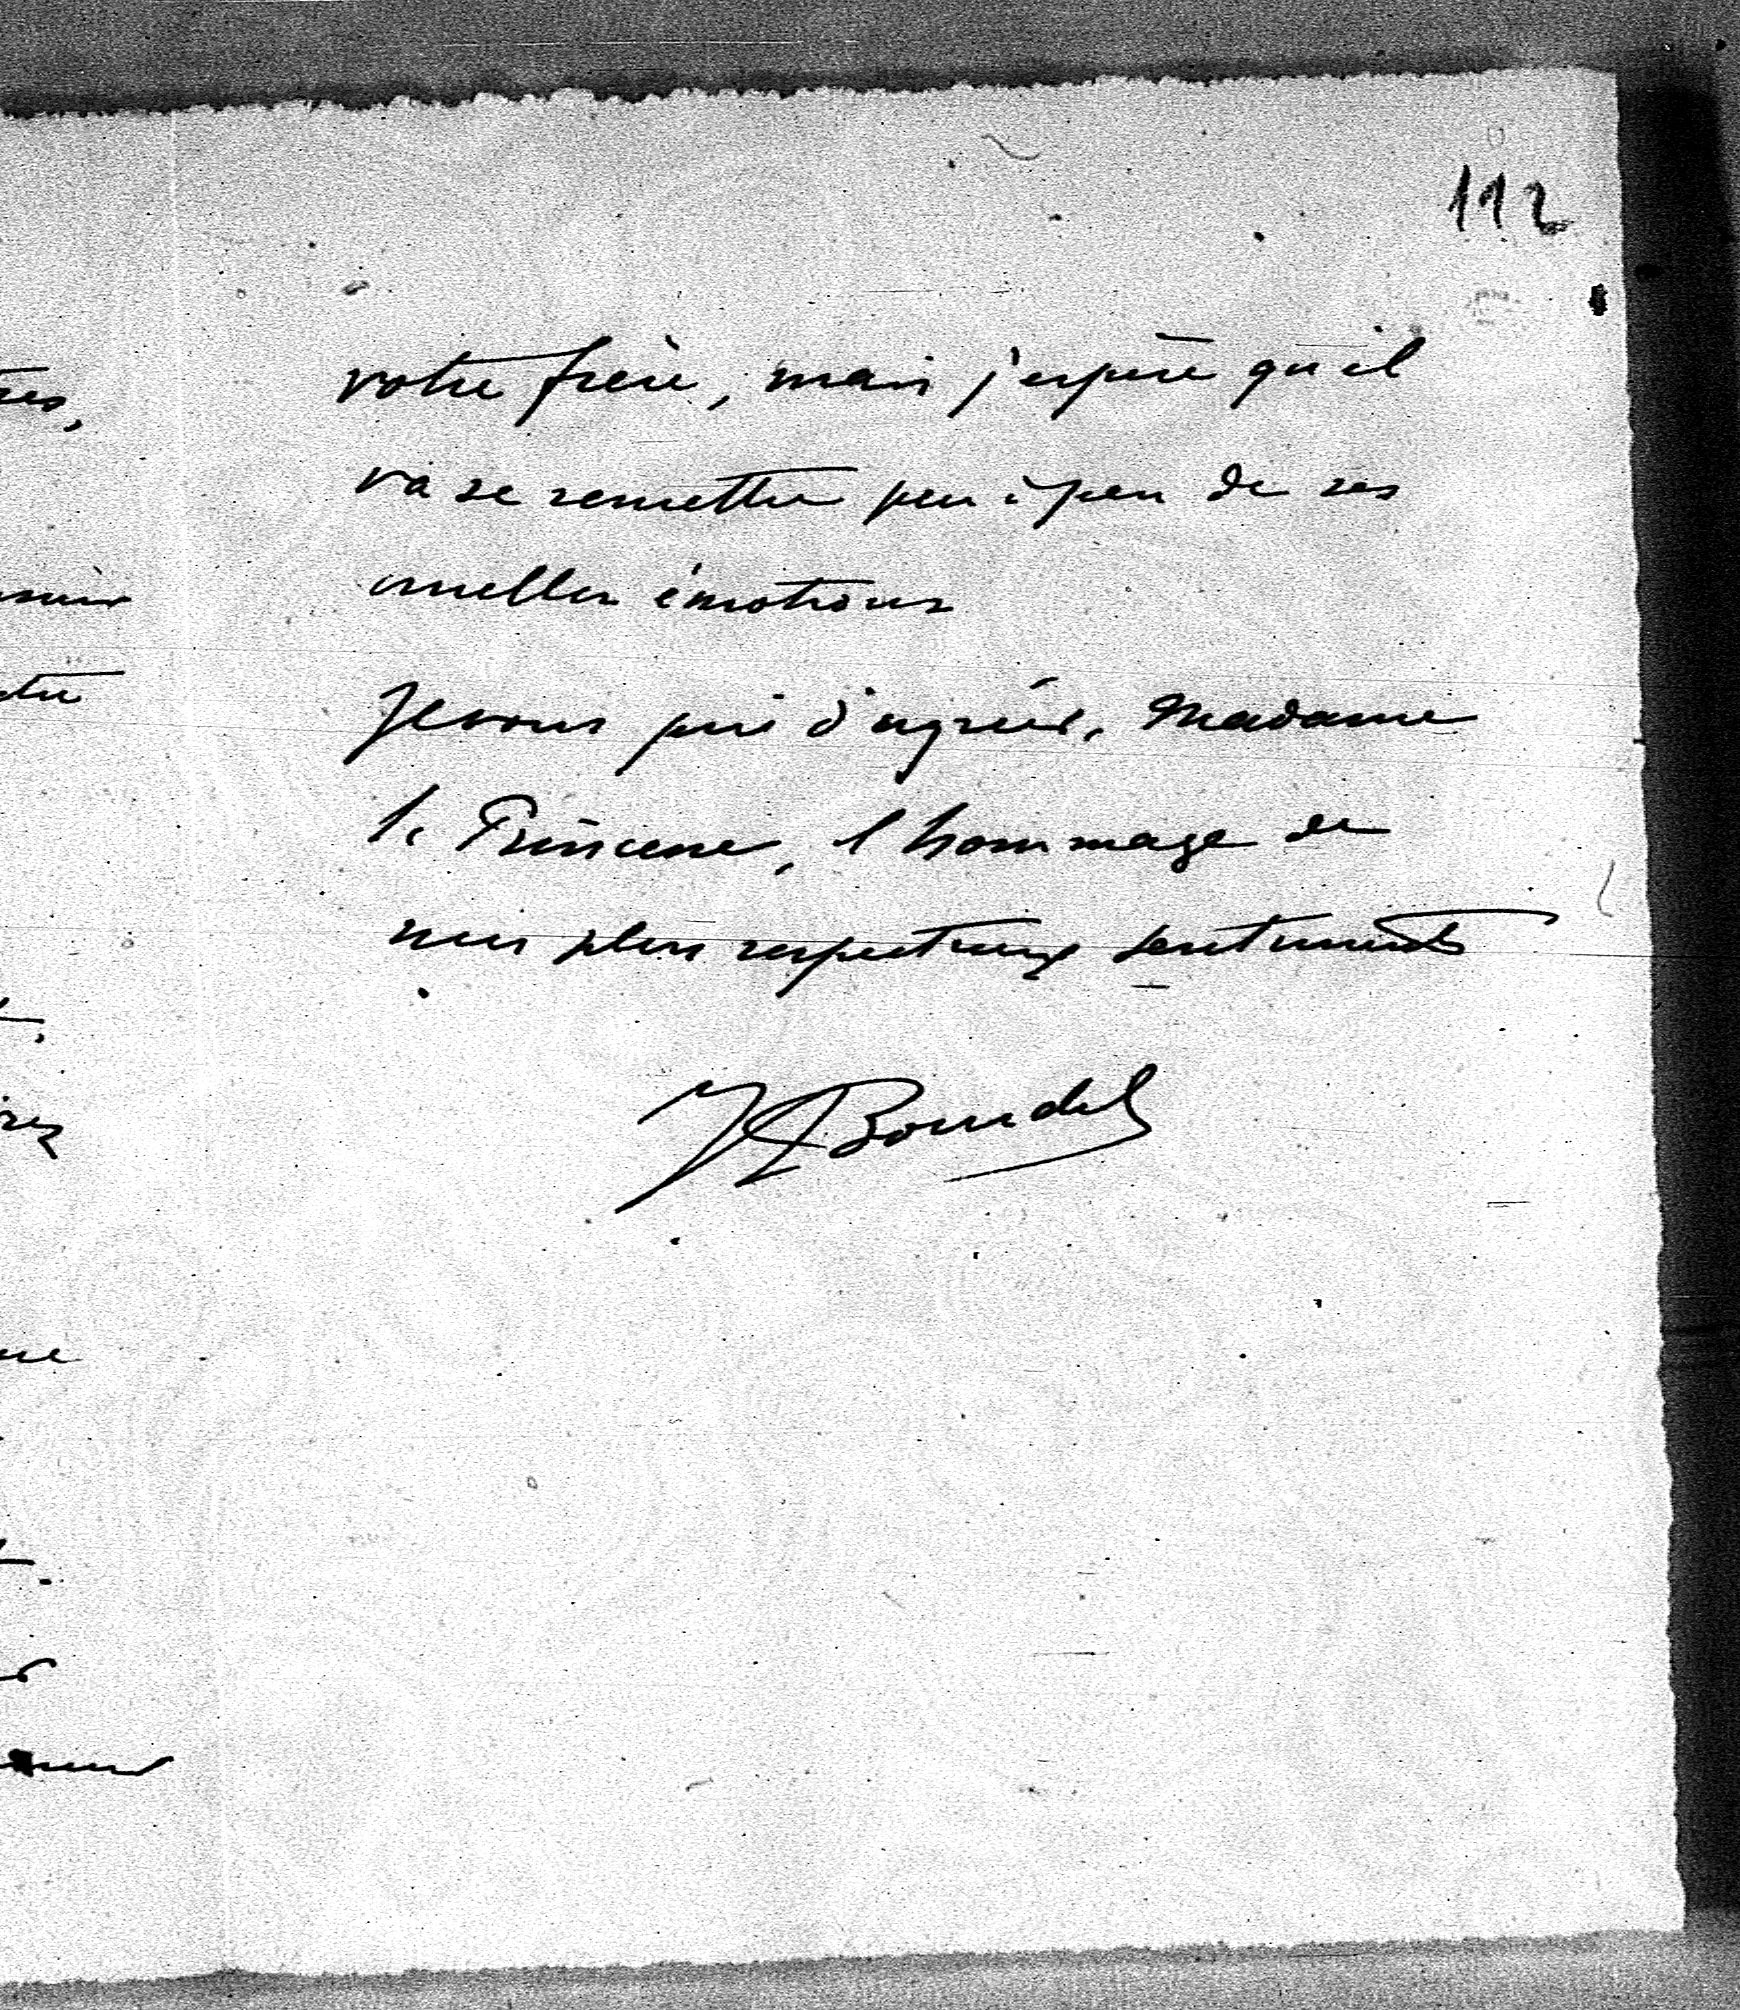 112
votre frère, mais j'espère qu'il
va se remettre peu à peu de ses
cruelles émotions
Je vous prie d'agréer, Madame
la Princesse, l'hommage de
mes plus respectueux sentiments